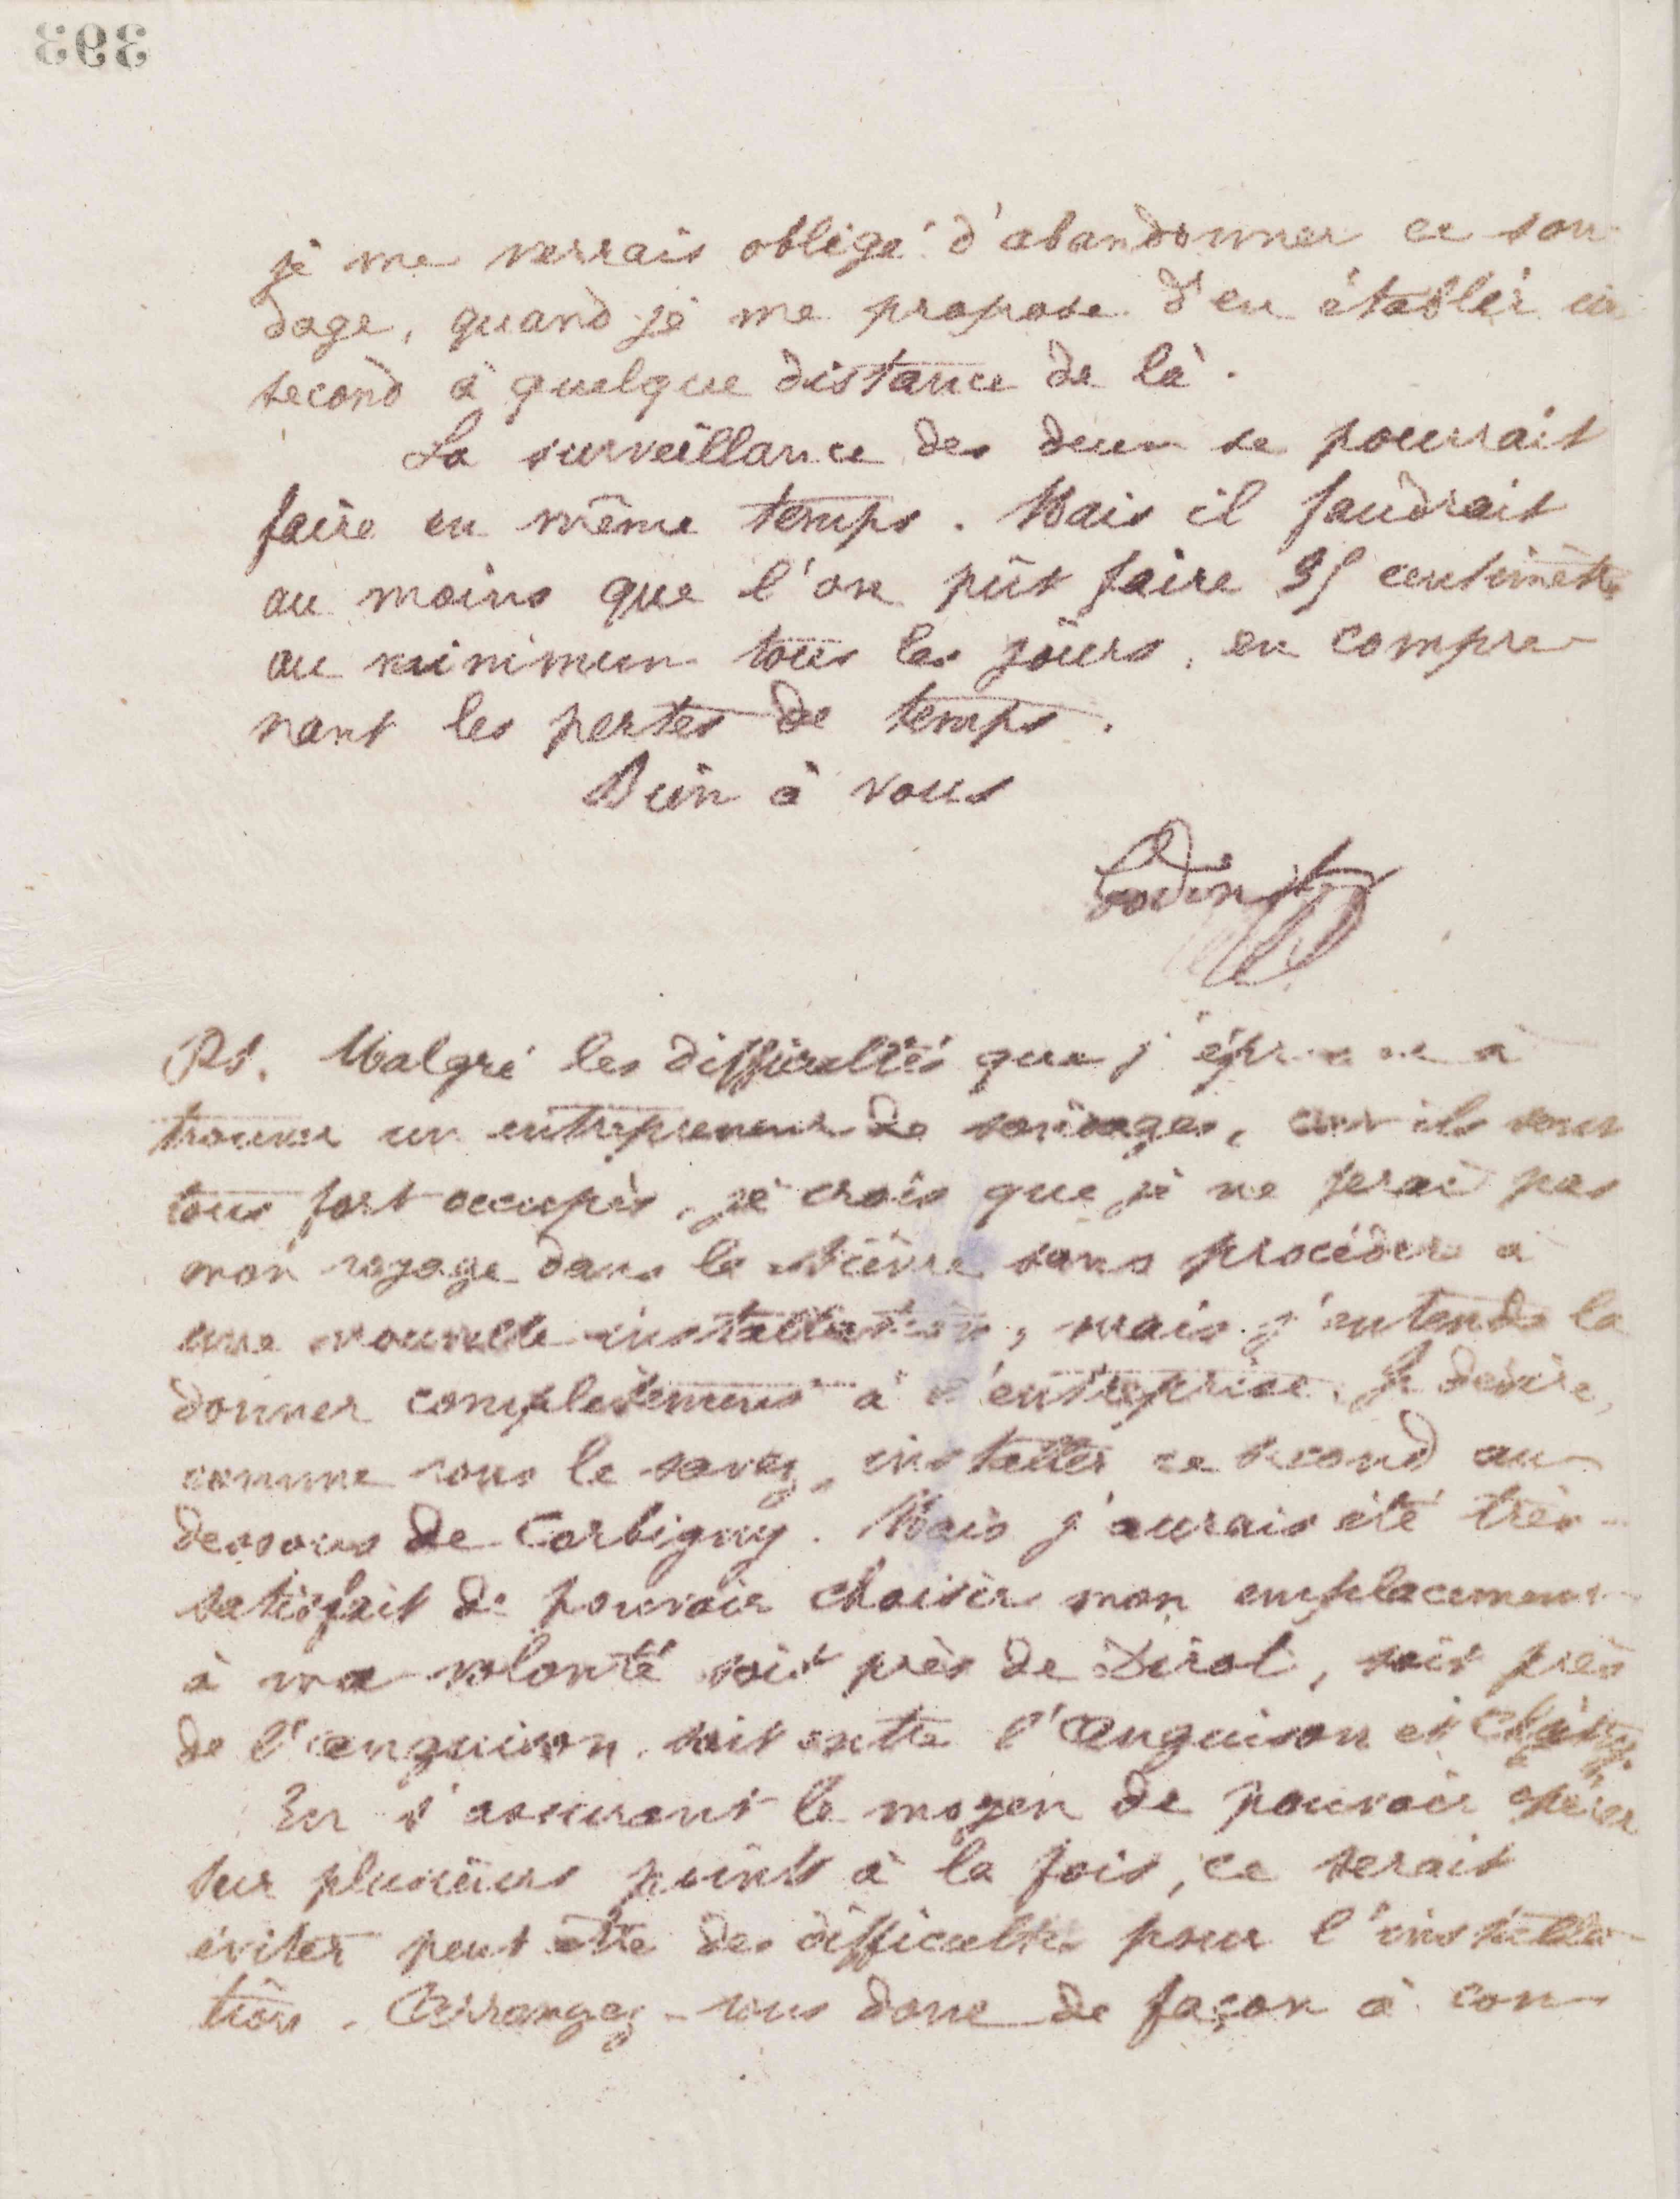 393
je me verrais obligé d'abandonner ce son-
dage, quand je me propose d'en établir un
second à quelque distance de là.
La surveillance des deux se pourrait
faire en même temps. Mais il faudrait
au moins que l'on pût faire 35 centimètres
au minimum tous les jours, en compre-
nant les pertes de temps.
Bien à vous
Godin
Ps. Malgré les difficultés que j'éprouve à
trouver un entrepreneur de sondages, car ils sont
tous fort occupés, je crois que je ne ferai pas
mon voyage dans la Nièvre sans procéder à
une nouvelle installation, mais j'entends la
donner complètement à l'entreprise. Je désire,
comme vous le savez, installer ce second au-
dessous de Corbigny. Mais j'aurais été très-
satisfait de pouvoir choisir mon emplacement
à ma volonté soit près de Dirol, soit près
de l'anguison, soit entre l'Anguison et
En s'assurant le moyen de pouvoir opérer
sur plusieurs points à la fois, ce serait
éviter peut être des difficultés pour l'installa-
tion. Arrangez-vous donc de façon à con-